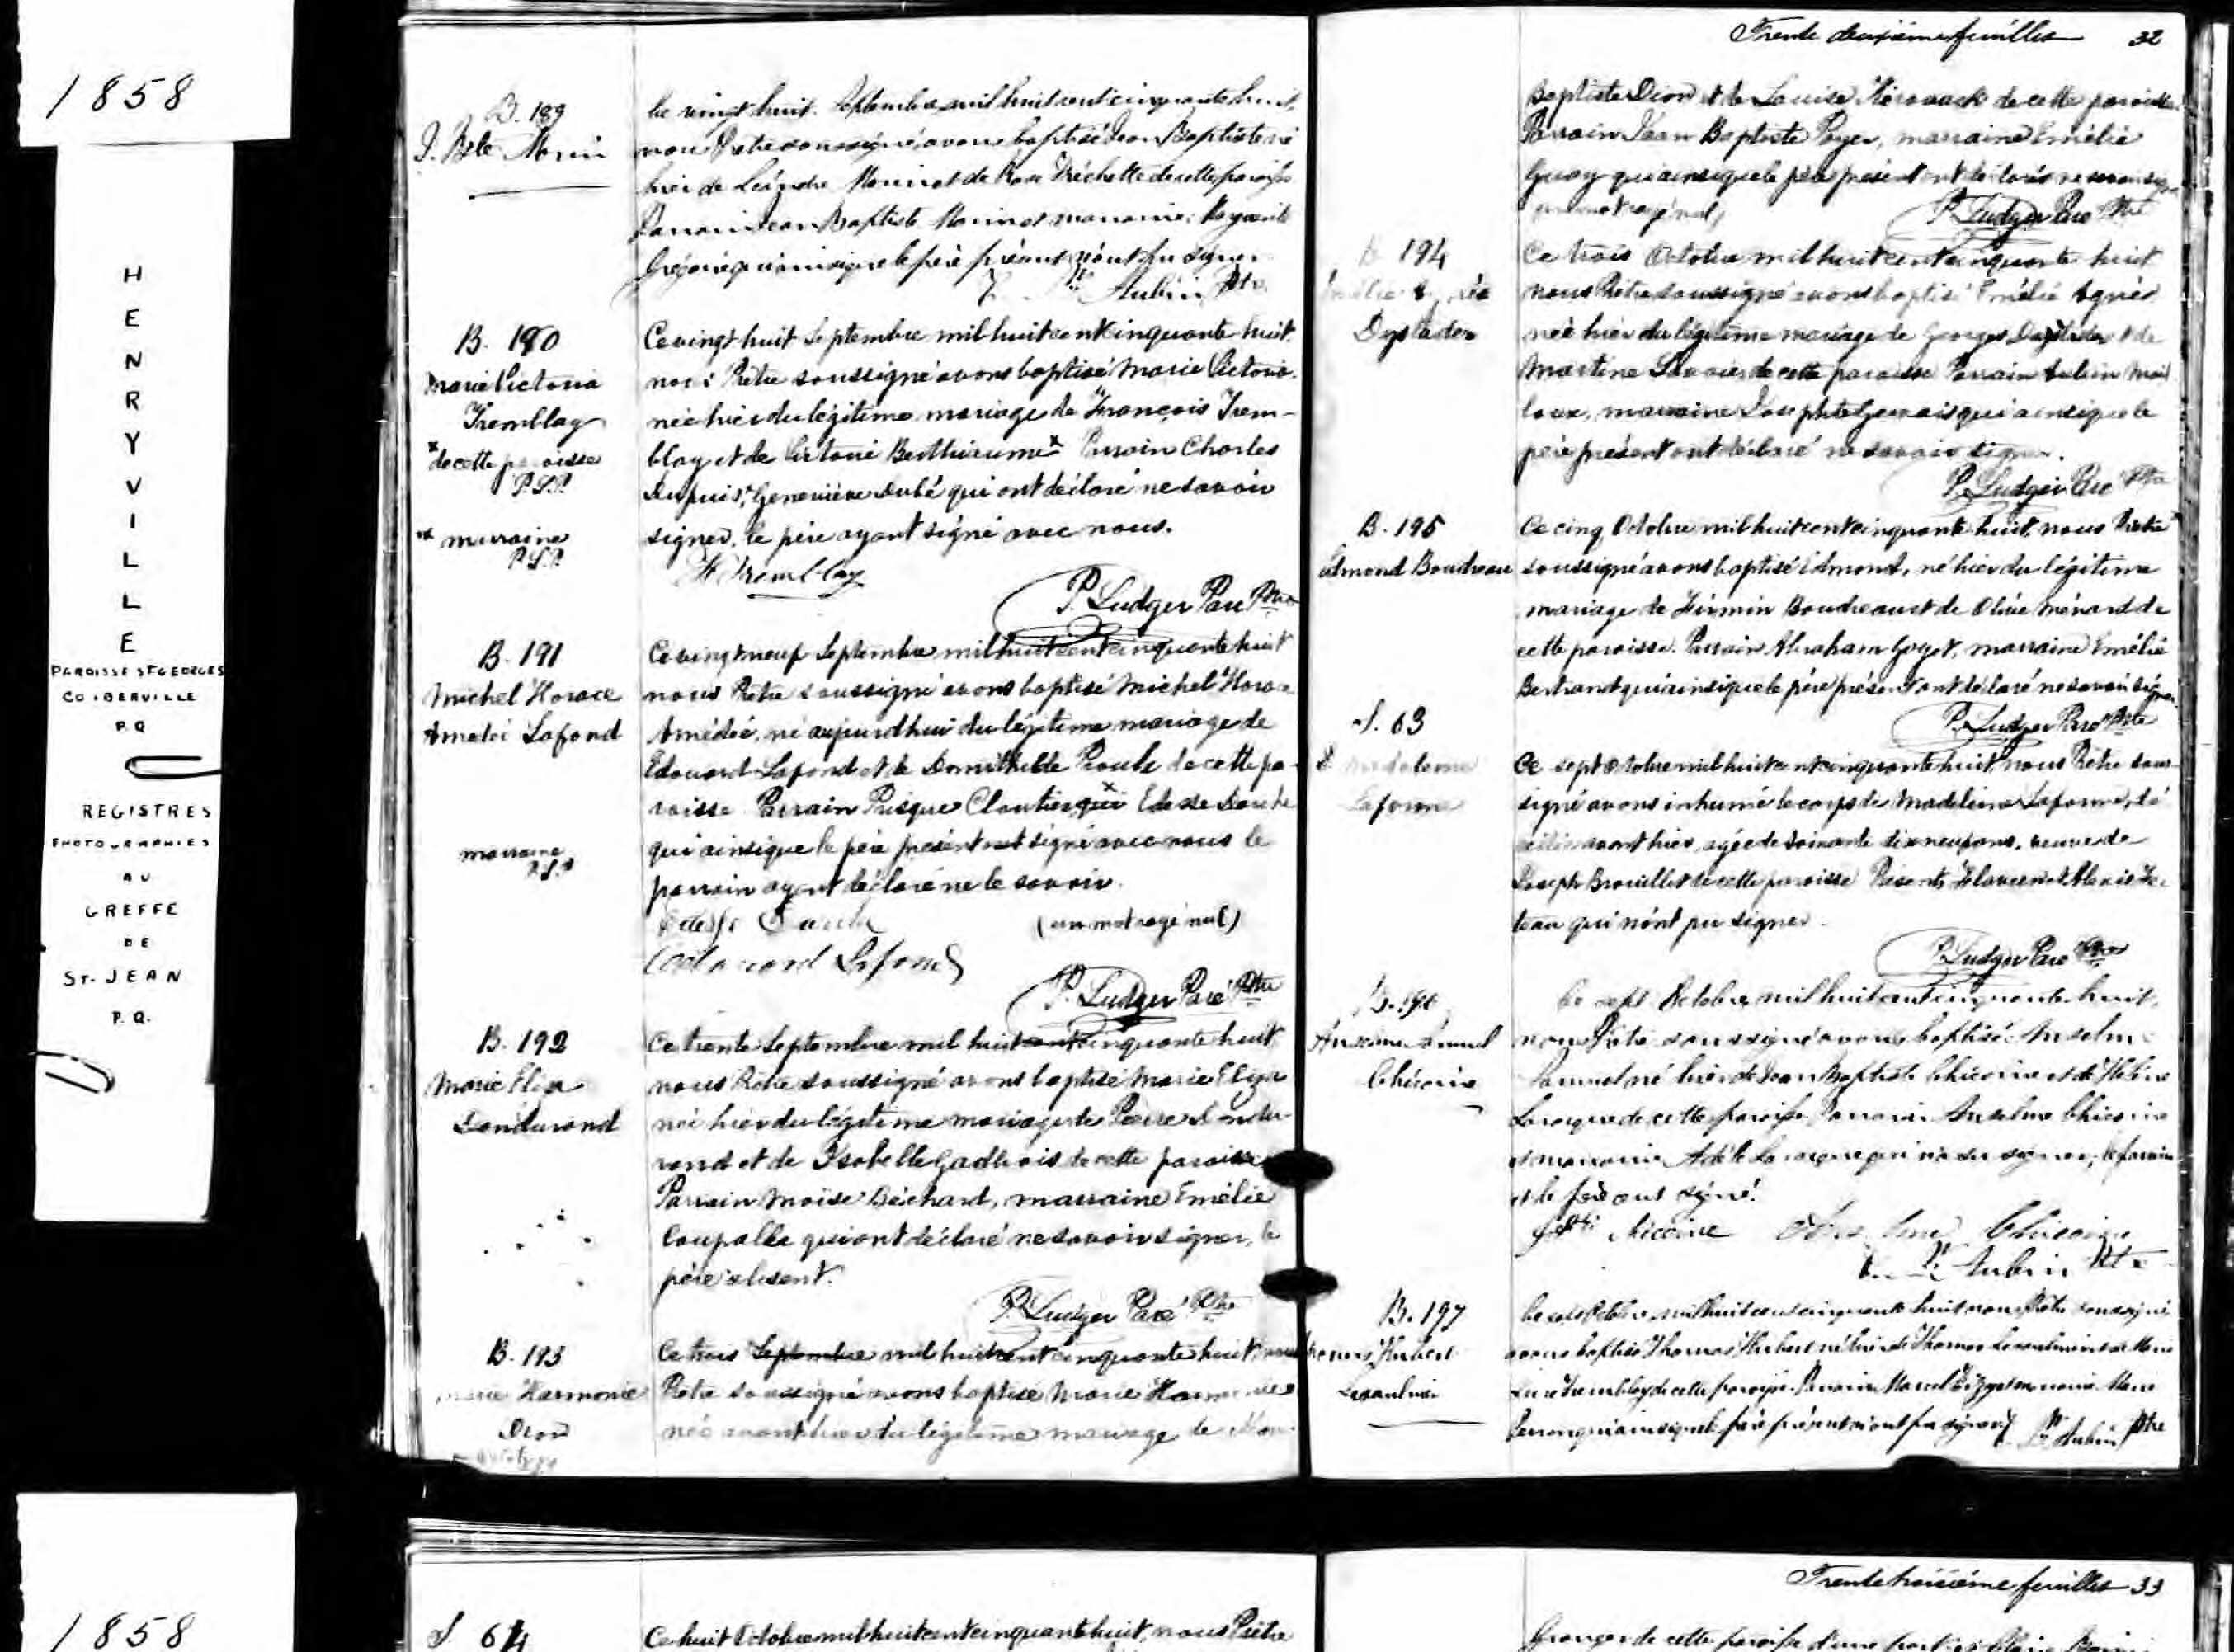 1858
HENRYVILLE
PAROISSE ST GEORGES
CO. IBERVILLE
P.Q.
REGISTRES
PHOTOGRAPHIES
AU
GREFFE
DE
ST. JEAN
P.Q.
B. 189
J. Bte Morin
Ce vingt huit Septembre mil huit cent cinquante huit,
nous Prêtre soussigné, avons baptisé Jean Baptiste né
hier de Léandre Morin et de Rose Fréchette de cette paroisse
Parrain Jean Baptiste Morin et marraine
Grégoire qui ainsi que le père présent n'ont pu signer
Aubin Ptre
B. 190
Marie Victoria
Tremblay
x de cette paroisse
P.L.P.
x marraine
P.L.P.
Ce vingt huit Septembre mil huit cent cinquante huit
nous Prêtre soussigné avons baptisé Marie Victoria
née hier du légitime mariage de François Trem-
blay et de Victoire Berthiaume x Parrain Charles
Dupuis, x Geneviève Dubé qui ont déclaré ne savoir
signer, le père ayant signé avec nous.
F. Tremblay
P. Ludger Paré Ptre
B. 191
Michel Horace
Amédée Lafond
marraine
P.L.P.
Ce vingt neuf Septembre mil huit cent cinquante huit
nous Prêtre soussigné avons baptisé Michel Horace
Amédée, né aujourdhui du légitime mariage de
Edouard Lafond et de Domithilde Proulx de cette pa-
roisse Parrain Prisque Cloutier qui x Edesse Darche
qui ainsi que le père présent ont signé avec nous le
parrain ayant déclaré ne le savoir.
Edesse Darche (un mot rayé nul)
Edouard Lafond
P. Ludger Paré Ptre
B. 192
Marie Eliza
Landurand
Ce trente Septembre mil huit cent cinquante huit
nous Prêtre soussigné avons baptisé Marie Eliza
née hier du légitime mariage de Pierre Landu-
rand et de Isabelle Gadbois de cette paroisse
Parrain Moïse Béchard, marraine Emélie
Coupalle qui ont déclaré ne savoir signer, le
père absent.
P. Ludger Paré Ptre
B. 193
Marie Harmonie
Dion
Ce trois Septembre mil huit cent cinquante huit nous
Prêtre soussigné avons baptisé Marie Harmonie
née avant hier du légitime mariage de
Trente deuxième feuilles 32
Baptiste Dion et de Louise Kérouack de cette paroisse
Parrain Jean Baptiste Payer, marraine Emélie
Guay qui ainsi que le père présent ont déclaré ne savoir signer
un mot rayé nul
P. Ludger Paré Ptre
B. 194
Emélie Agnès
Dextader
Ce trois Octobre mil huit cent cinquante huit
nous Prêtre soussigné avons baptisé Emélie Agnès
née hier du légitime mariage de Georges et de
Martine Savaie de cette paroisse Parrain Aubin Mail
loux, marraine Josephte Gervais qui ainsi que le
père présent ont déclaré ne savoir signer.
P. Ludger Paré Ptre
B. 195
Edmond Boudreau
Ce cinq Octobre mil huit cent cinquante huit, nous Prêtre
soussigné avons baptisé Edmond, né hier du légitime
mariage de Firmin Boudreau et de Olive Ménard de
cette paroisse. Parrain Abraham Goyet, marraine Emélie
Bertrand qui ainsi que le père présent ont déclaré ne savoir signer.
P. Ludger Paré Ptre
S. 63
Madeleine
Laforme
Ce sept Octobre mil huit cent cinquante huit, nous Prêtre sous-
signé avons inhumé le corps de Madeleine Laforme, dé-
cédée avant hier, agée de soixante dix neuf ans, veuve de
Joseph Brouillet de cette paroisse Présents et Alexis
qui n'ont pu signer.
P. Ludger Paré Ptre
B. 196
Anselme Samuel
Chicoine
Ce sept Octobre mil huit cent cinquante huit,
nous Prêtre soussigné avons baptisé Anselme
Samuel né hier de Jean Baptiste Chicoine et de Hélène
Larocque de cette paroisse Parrain Anselme Chicoine
et marraine Adèle Larocque qui n'a su signer, le parrain
et le père ont signé.
Chicoine Anselme Chicoine
Aubin Ptre
B. 197
Thomas Hubert
Lesaulnier
Ce sept Octobre mil huit cent cinquante huit nous Prêtre soussigné
avons baptisé Thomas Hubert né hier de Thomas Lesaulnier et de Marie
Tremblay de cette paroisse Parrain Marcel marraine Marie
qui ainsi que le père présent n'ont pu signer
Aubin Ptre
1858
S 64
Ce huit Octobre mil huit cent cinquante huit, nous Prêtre
Trente troisième feuilles 33
Granger de cette paroisse d'une part